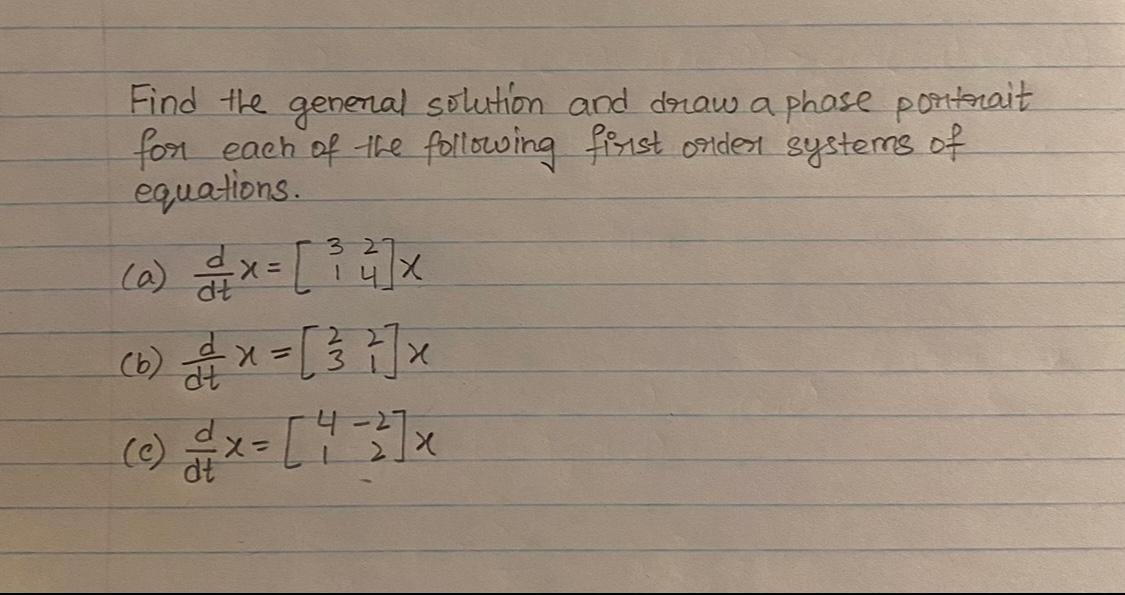 Find the general solution and draw a phase portrait
for each of the following first order systems of
equations.
(a) d/dt x = [3 2; 1 4] x
(b) d/dt x = [2 2; 3 1] x
(c) d/dt x = [4 -2; 1 2] x